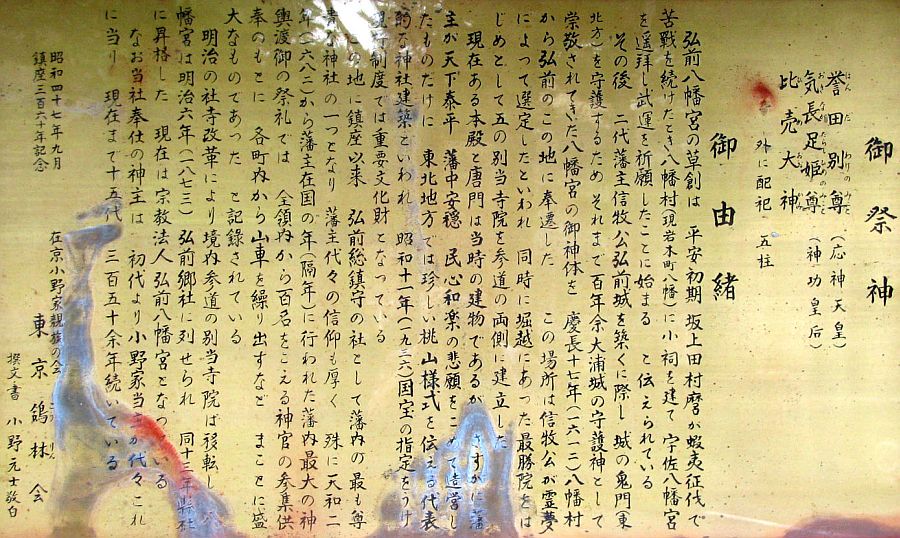 御祭神
誉田別尊（応神天皇）
ほんだわけのみこと
気長足姫尊（神功皇后）
比売大神
外に配祀 五柱
御由緒
弘前八幡宮の草創は 平安初期 坂上田村麿が蝦夷征伐で
苦戦を続けたとき八幡村（現若木町八幡）に小祠を建て 宇佐八幡宮
を遥拝し武運を祈願したことに始まる と伝えられている
その後 二代藩主信牧公弘前城を築くに際し 城の鬼門（東
北方）を守護するため それまで百年余大浦城の守護神として
崇敬されていた八幡宮の御神体を 慶長十七年（一六一二）八幡村
から弘前のこの地に奉遷した この場所は信牧公が霊夢
によって選定したといわれ 同時に堀越にあった最勝院をは
じめとして五の別当寺院を参道の両側に建立した
現在ある本殿と唐門は当時の建物であるが さすがに藩
主が天下泰平 藩中安穏 民心和楽の悲願をこめて造営し
たものだけに 東北地方では珍しい桃山様式を伝える代表
的な神社建築といわれ 昭和十一年（一九三六）国宝の指定をうけ
現行制度では重要文化財となっている
この地に鎮座以来 弘前総鎮守の社として藩内の最も尊
貴な神社の一つとなり 藩主代々の信仰も厚く 殊に天和二
年（一六八二）から藩主在国の年（隔年）に行われた藩内最大の神
輿渡御の祭礼では 全領内から百名をこえる神官の参集供
奉のもとに 各町内から山車を繰り出すなど まことに盛
大なものであった と記録されている
明治の社寺改革により 境内参道の別当寺院は移転し
幡宮は明治六年（一八七三）弘前郷社に列せられ 同十三年縣社
に昇格した 現在は宗教法人弘前八幡宮となっている
なお当社奉仕の神主は 初代より小野家当主が代々これ
に当り 現在まで十五代 三百五十余年続いている
昭和四十七年九月
鎮座三百六十年記念
在京小野家親族の会
東京鷄林会
撰文書 小野元士敬白